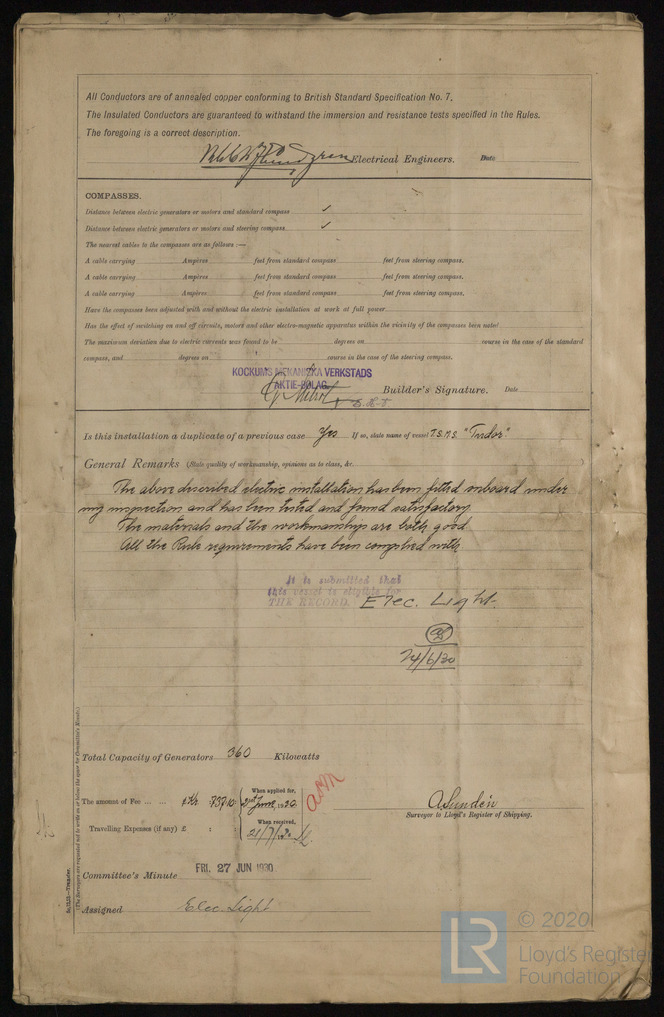 All Conductors are of annealed copper conforming to British Standard Specification No. 7.
The Insulated Conductors are guaranteed to withstand the immersion and resistance tests specified in the Rules.
The foregoing is a correct description.
Electrical Engineers. Date
COMPASSES.
Distance between electric generators or motors and standard compass ✓
Distance between electric generators or motors and steering compass ✓
The nearest cables to the compasses are as follows :—
A cable carrying Ampères feet from standard compass feet from steering compass.
A cable carrying Ampères feet from standard compass feet from steering compass.
A cable carrying Ampères feet from standard compass feet from steering compass.
Have the compasses been adjusted with and without the electric installation at work at full power
Has the effect of switching on and off circuits, motors and other electro-magnetic apparatus within the vicinity of the compasses been noted
The maximum deviation due to electric currents was found to be degrees on course in the case of the standard
compass, and degrees on course in the case of the steering compass.
KOCKUMS MEKANISKA VERKSTADS
AKTIE-BOLAG
Builder's Signature. Date
Is this installation a duplicate of a previous case Yes If so, state name of vessel T.S.M.S. "Tudor"
General Remarks (State quality of workmanship, opinions as to class, &c.
The above described electric installation has been fitted onboard under
my inspection and has been tested and found satisfactory
The materials and the workmanship are both good
All the Rule requirements have been complied with.
It is submitted that
this vessel is eligible for
THE RECORD. Elec. Light.
24/6/30
Total Capacity of Generators 360 Kilowatts
The amount of Fee ... ... £ Kr 737.10 When applied for, 21st June 1930
Travelling Expenses (if any) £ : When received, 21/7/30
A Sundén
Surveyor to Lloyd's Register of Shipping.
Committee's Minute FRI. 27 JUN 1930
Assigned Elec. Light
(The Surveyors are requested not to write on or below the space for Committee's Minute.)
© 2020
LR
Lloyd's Register
Foundation